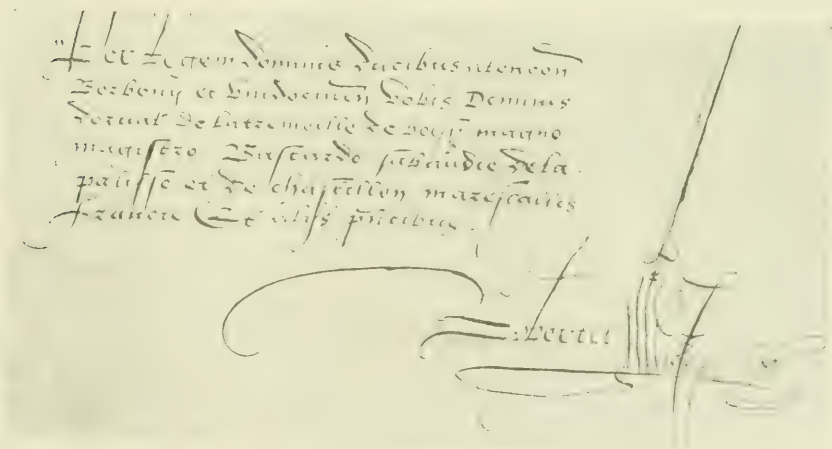 Per Regem Dominis Ducibus Alencon
Borbonij et Vindocinen Vobis Dominis
Dorual De Latremoille De boysy magno
magistro Bastardo sabaudie Dela
palisse et de chastillon marescallis
francie Et aliis pntibus.